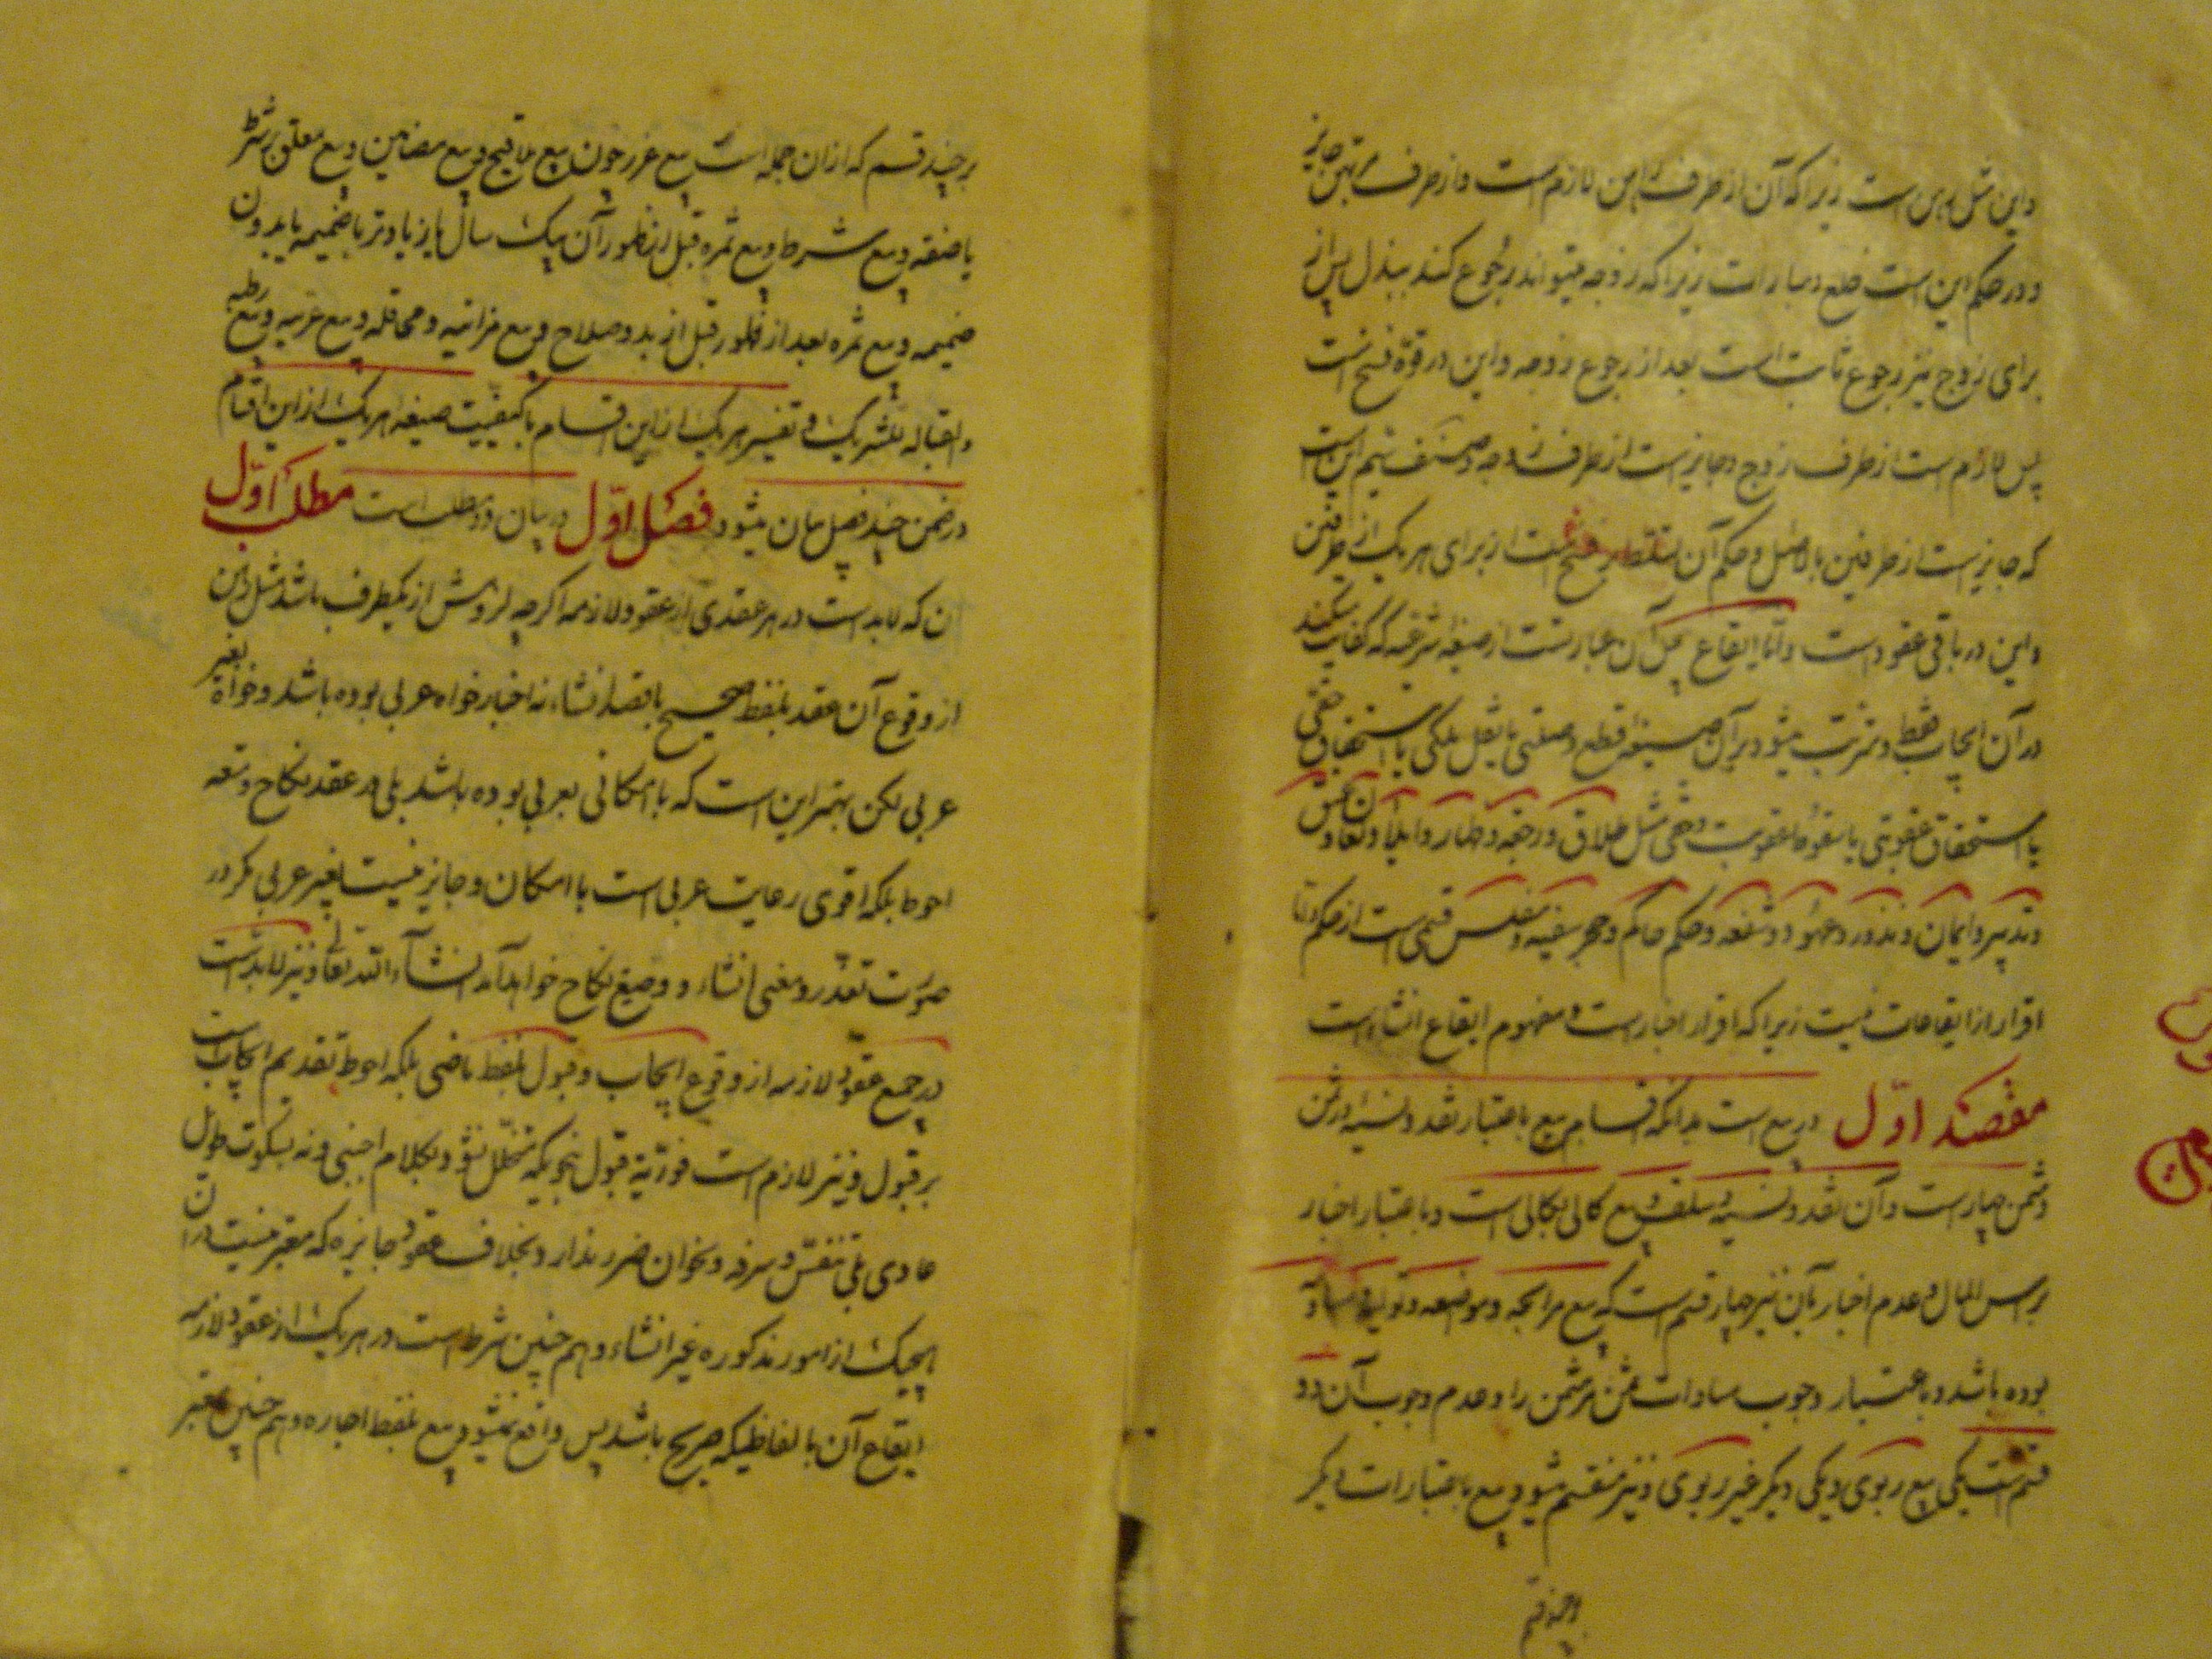 و این مثل رهن است زیرا که آن از طرف راهن لازم است و از طرف مرتهن جایز
و در حکم این است خلع و مبارات زیرا که زوجه میتواند رجوع کند ببذل پس از
برای زوج نیز رجوع ثابت است بعد از رجوع زوجه و این در قوة فسخ است
پس لازم است از طرف زوج و جایز است از طرف زوجه و صنف سیم این است
که جایز است از طرفین بالاصل و حکم آن تسلط بر فسخ است از برای هر یک از طرفین
و این در باقی عقود است و امّا ایقاع پس آن عبارتست از صیغه شرعیه که کفایت میکند
در آن ایجاب فقط و مترتب میشود بر آن صیغه قطع وصلتی یا نقل ملکی یا استحقاق حقی
یا استحقاق عقوبتی یا سقوط عقوبت و حقی مثل طلاق و رجعه و ظهار و ایلاء و لعان و عتق
و تدبیر و ایمان و نذور و عهود و شفعه و حکم حاکم و حجر سفیه و مفلس قسمی است از حکم و امّا
اقرار از ایقاعات نیست زیرا که اقرار اخبار است و مفهوم ایقاع انشاء است
مقصد اوّل در بیع است بدانکه اقسام بیع باعتبار نقد و نسیه در ثمن
و مثمن چهار است و آن نقد و نسیه و سلف و بیع کالی بکالی است و باعتبار اخبار
براس المال و عدم اخبار بآن نیز چهار قسم است که بیع مرابحه و مواضعه و تولیه و مساومه
بوده باشد و باعتبار وجوب مساوات ثمن مر مثمن را و عدم وجوب آن دو
قسم است یکی بیع ربوی و یکی دیگر غیر ربوی و نیز منقسم میشود بیع باعتبارات دیگر
بر چند قسم
بر چند قسم که از ان جمله است بیع غرر چون بیع ملاقیح و بیع مضامین و بیع معلق بر شرط
یا صفقه و بیع شرط و بیع ثمره قبل از ظهور آن یک سال یا زیادتر با ضمیمه یا بدون
ضمیمه و بیع ثمره بعد از ظهور قبل از بدو صلاح و بیع مزابنه و محاقله و بیع عریه و بیع رطبه
و اقباله و تشریک و تفسیر هر یک از این اقسام با کیفیّت صیغه هر یک از این اقسام
در ضمن چند فصل بیان میشود فصل اوّل در بیان دو مطلب است مطلب اوّل
ن که لابد است در هر عقدی از عقود لازمه اگرچه لزومش از یکطرف باشد مثل رهن
از وقوع آن عقد بلفظ صحیح بقصد انشاء نه اخبار خواه عربی بوده باشد و خواه بغیر
عربی لکن بهتر این است که با امکانی بعربی بوده باشد بلی در عقد نکاح و متعه
احوط بلکه اقوی رعایت عربی است با امکان و جایز نیست بغیر عربی مگر در
صورت تعذّر و معنی انشاء در صیغ نکاح خواهد آمد انشآء اللّه تعالی و نیز لابد است
در جمیع عقود لازمه از وقوع ایجاب و قبول بلفظ ماضی بلکه احوط تقدیم ایجاب است
بر قبول و نیز لازم است فوریّة قبول بنحویکه متخلّل نشود بکلام اجنبی و نه بسکوت طویل
عادی بلی تنفّس و سرفه و نحوان ضرر ندارد بخلاف عقود جایزه که معتبر نیست در ان
هیچیک از امور مذکوره غیر انشاء و هم چنین شرط است در هر یک از عقود لازمه
ایقاع آن بالفاظیکه صریح باشد پس واقع نمیشود بیع بلفظ اجاره و هم چنین معتبر